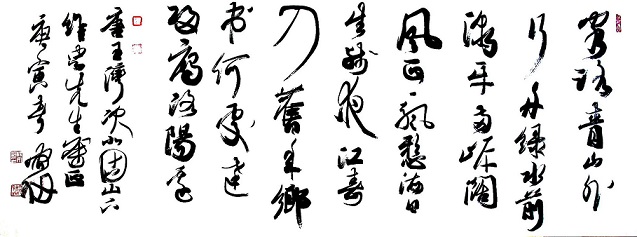 客路青山外
行舟绿水前
潮平两岸阔
风正一帆悬海日
生残夜江春
入舊年鄉
书何处达
归雁洛陽边
唐王湾次北固山下
先生正
庚寅春